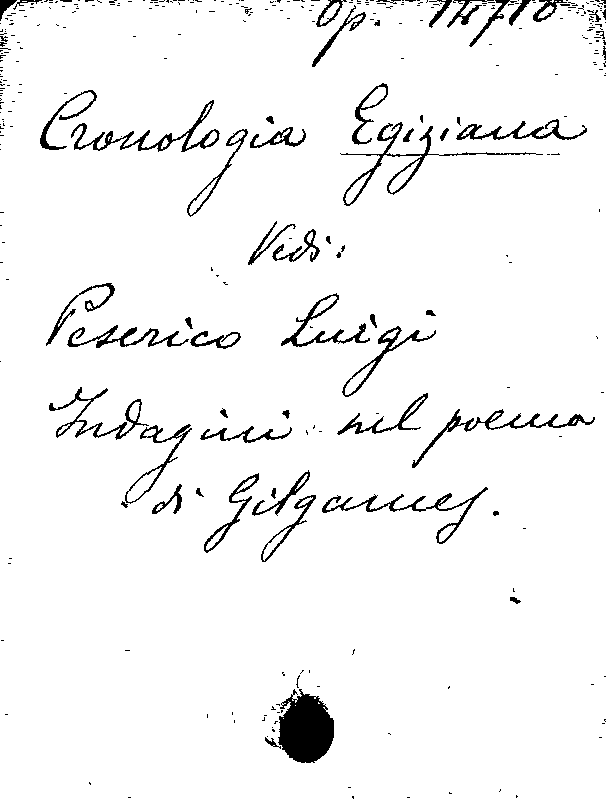 Op. 14710
Cronologia Egiziana
Vedi:
Peserico Luigi
Indagini nel poema
di Gilgames.